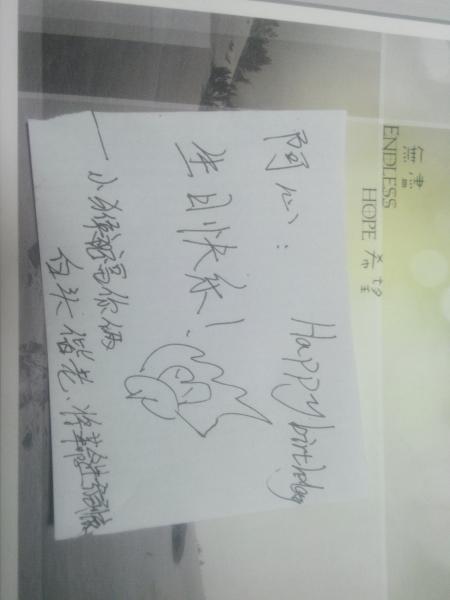 無盡
ENDLESS
HOPE 希望
阿心: Happy birthday
生日快乐!
—小猴祝福你俩
白头偕老、将革命进行到底